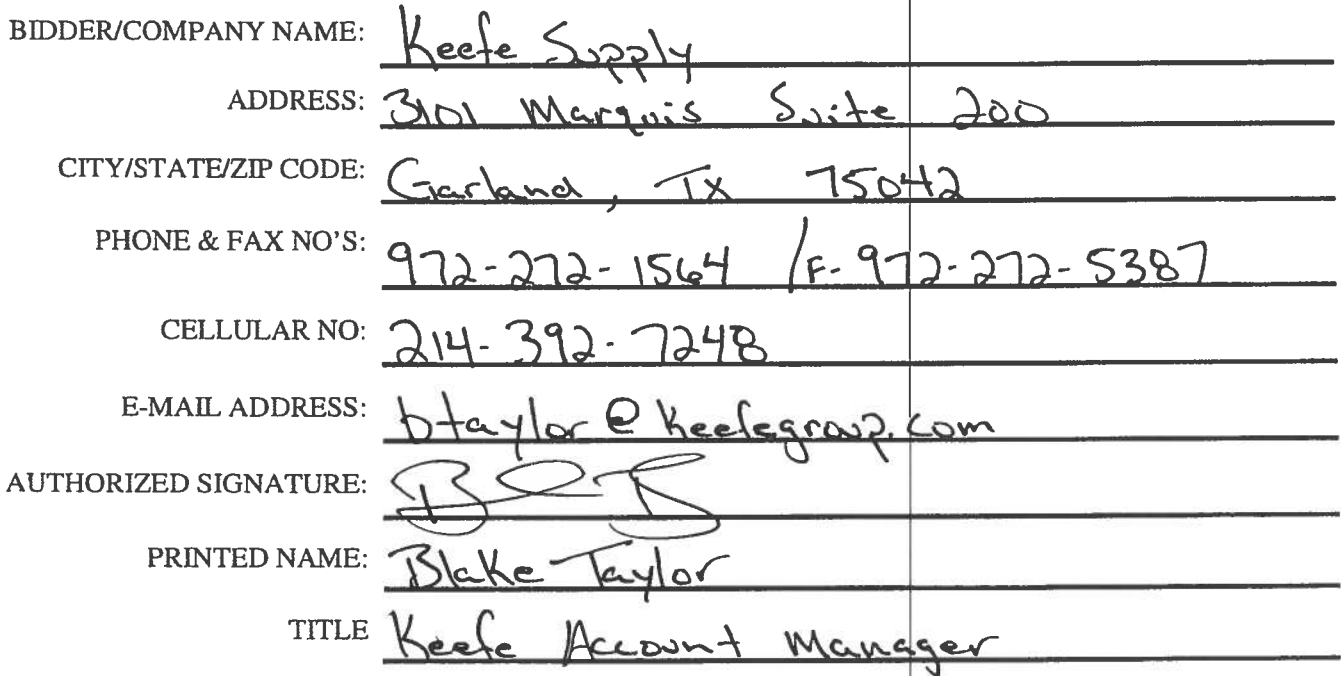 BIDDER/COMPANY NAME: Keefe Supply
ADDRESS: 3101 Marquis Suite 200
CITY/STATE/ZIP CODE: Garland, Tx 75042
PHONE & FAX NO'S: 972-272-1564 /F-972-272-5387
CELLULAR NO: 214-392-7248
E-MAIL ADDRESS: btaylor@keefegroup.com
AUTHORIZED SIGNATURE:
PRINTED NAME: Blake Taylor
TITLE Keefe Account Manager